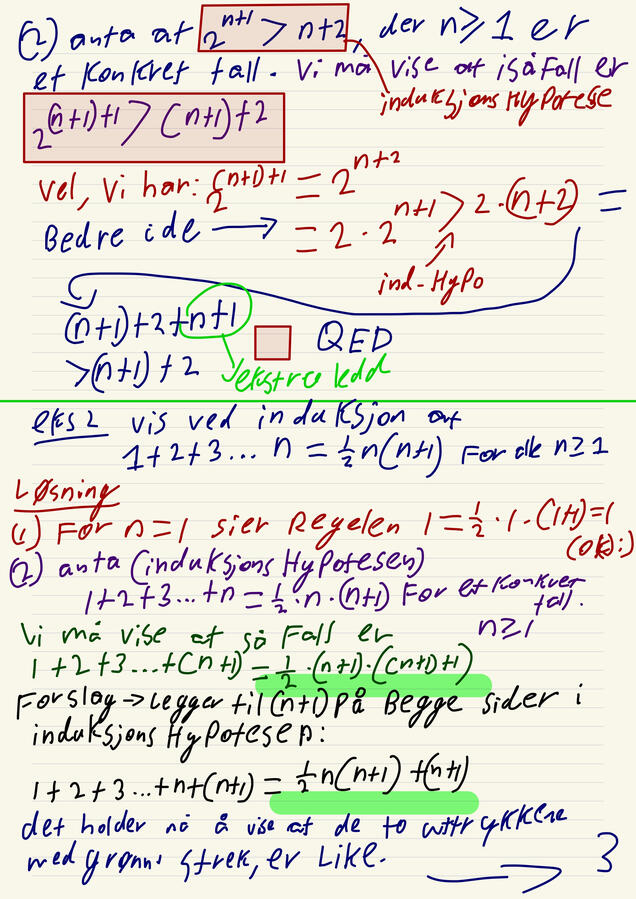 (2) anta at 2^{n+1} > n+2, der n ≥ 1 er
et konkret tall. Vi må vise at isåfall er
induksjons HyPotese
2^{(n+1)+1} > (n+1)+2
Vel, Vi har: 2^{(n+1)+1} = 2^{n+2}
Bedre ide → = 2 · 2^{n+1} > 2 · (n+2) =
ind-HyPo
(n+1)+2+n+1 □ QED
>(n+1)+2 ekstra ledd
eks 2 vis ved induksjon at
1+2+3... n = ½n(n+1) For alle n ≥ 1
Løsning
(1) For n = 1 sier Regelen 1 = ½ · 1 · (1+1) = 1
(ok:)
(2) anta (induksjons HyPotesen)
1+2+3...+n = ½ · n · (n+1) For et konkret
tall.
n ≥ 1
Vi må vise at så Fall er
1+2+3...+(n+1) = ½ · (n+1) · ((n+1)+1)
Forslag → Legger til (n+1) På Begge sider i
induksjons HyPotesen:
1+2+3...+n+(n+1) = ½n(n+1) + (n+1)
det holder nå å vise at de to uttrykkene
med grønn strek, er Like.
→ 3